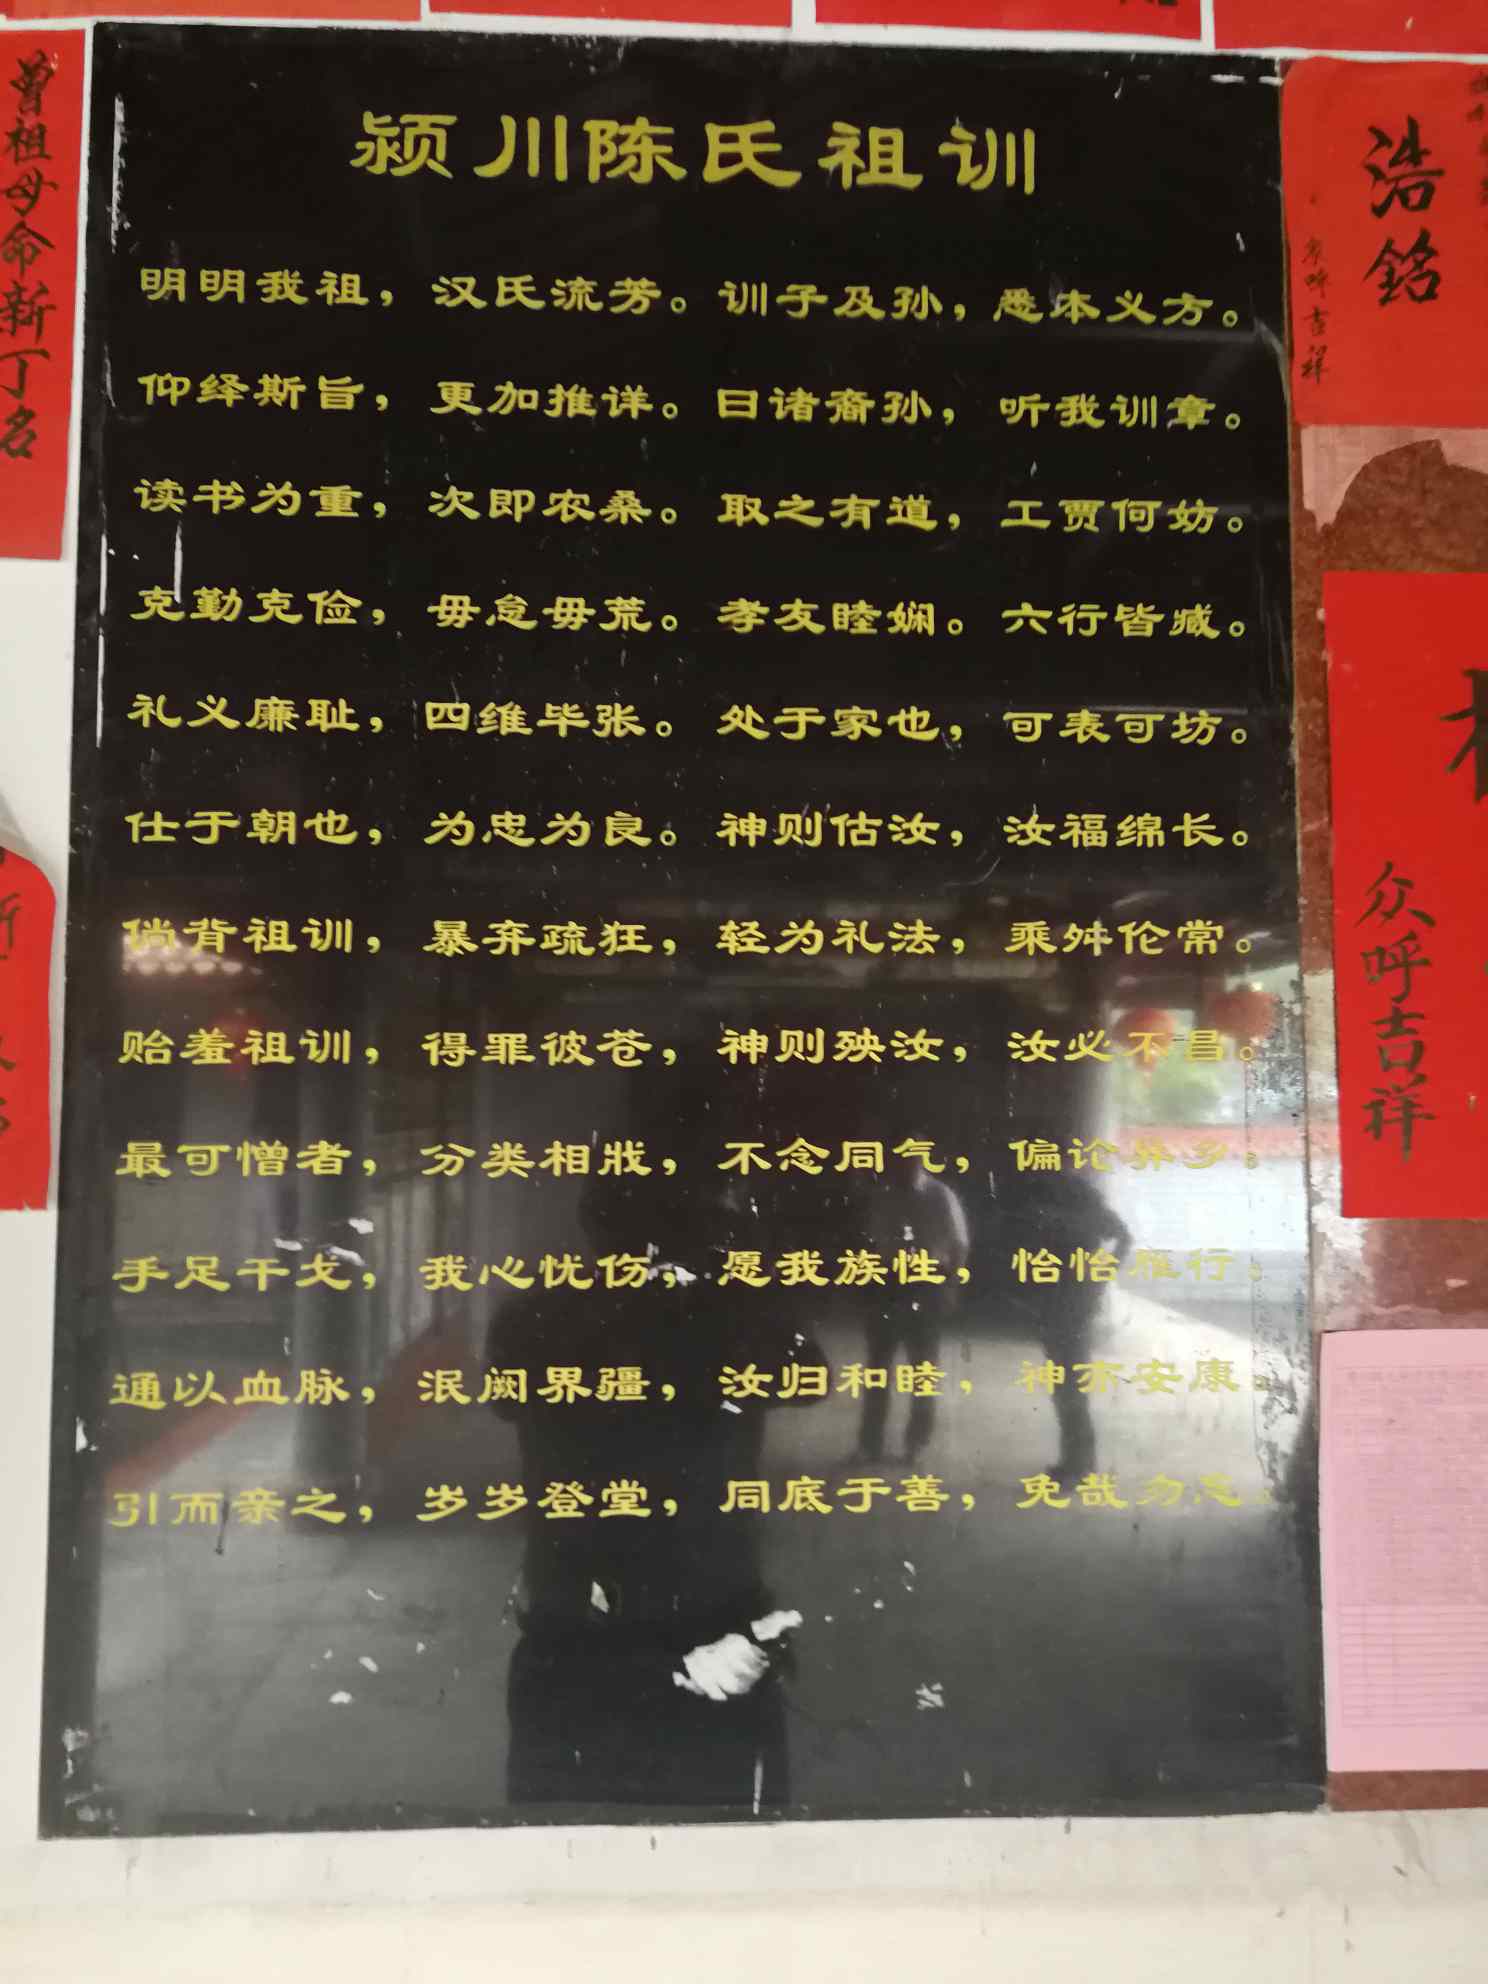 颍川陈氏祖训
明明我祖，汉氏流芳。训子及孙，悉本义方。
仰绎斯旨，更加推详。曰诸裔孙，听我训章。
读书为重，次即农桑。取之有道，工贾何妨。
克勤克俭，毋怠毋荒。孝友睦娴。六行皆臧。
礼义廉耻，四维毕张。处于家也，可表可坊。
仕于朝也，为忠为良。神则估汝，汝福绵长。
倘背祖训，暴弃疏狂，轻为礼法，乘舛伦常。
贻羞祖训，得罪彼苍，神则殃汝，汝必不昌。
最可憎者，分类相戕，不念同气，偏论异乡。
手足干戈，我心忧伤，愿我族性，怡怡雁行。
通以血脉，泯阙界疆，汝归和睦，神亦安康。
引而亲之，岁岁登堂，同底于善，免哉勿忘。
曾祖母命新丁名
浩铭
众呼吉祥
众呼吉祥